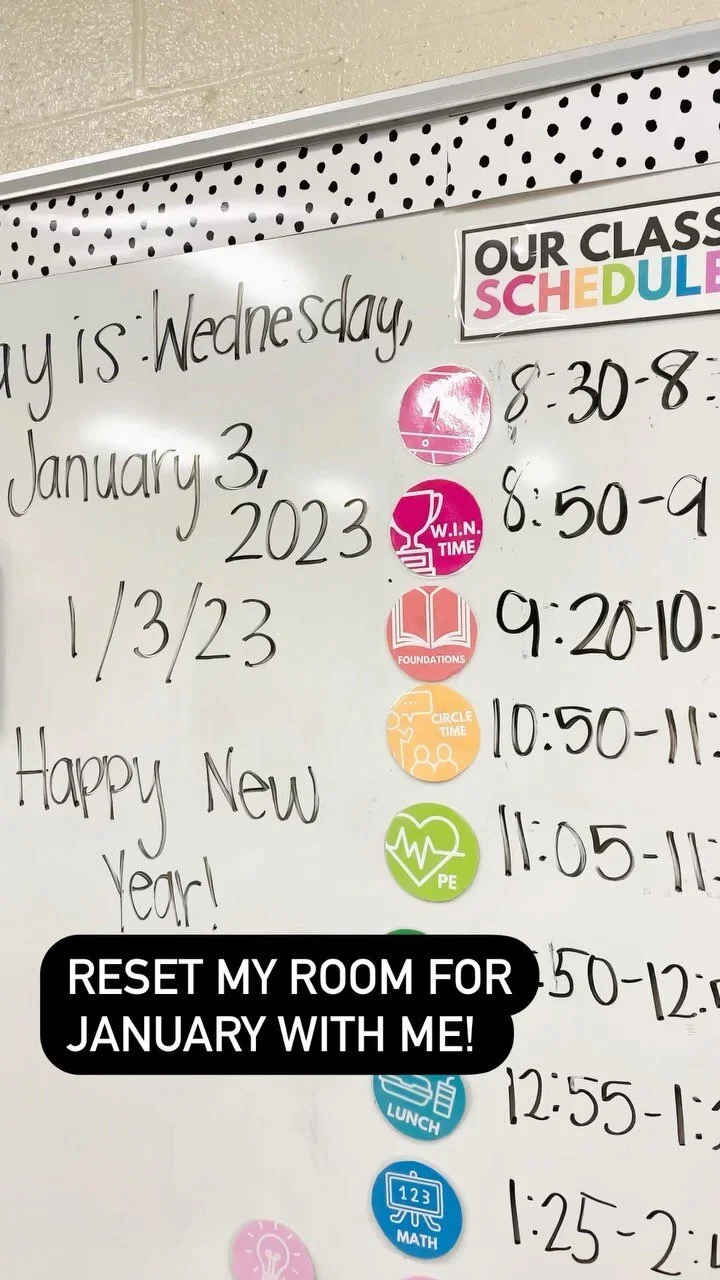 ay is: Wednesday,
January 3,
2023
1/3/23
Happy New
Year!
OUR CLASS
SCHEDULE
8:30-8:
W.I.N.
TIME
8:50-9
FOUNDATIONS
9:20-10:
CIRCLE
TIME
10:50-11:
PE
11:05-11:
:50-12:
RESET MY ROOM FOR
JANUARY WITH ME!
LUNCH
12:55-1:
123
MATH
1:25-2: